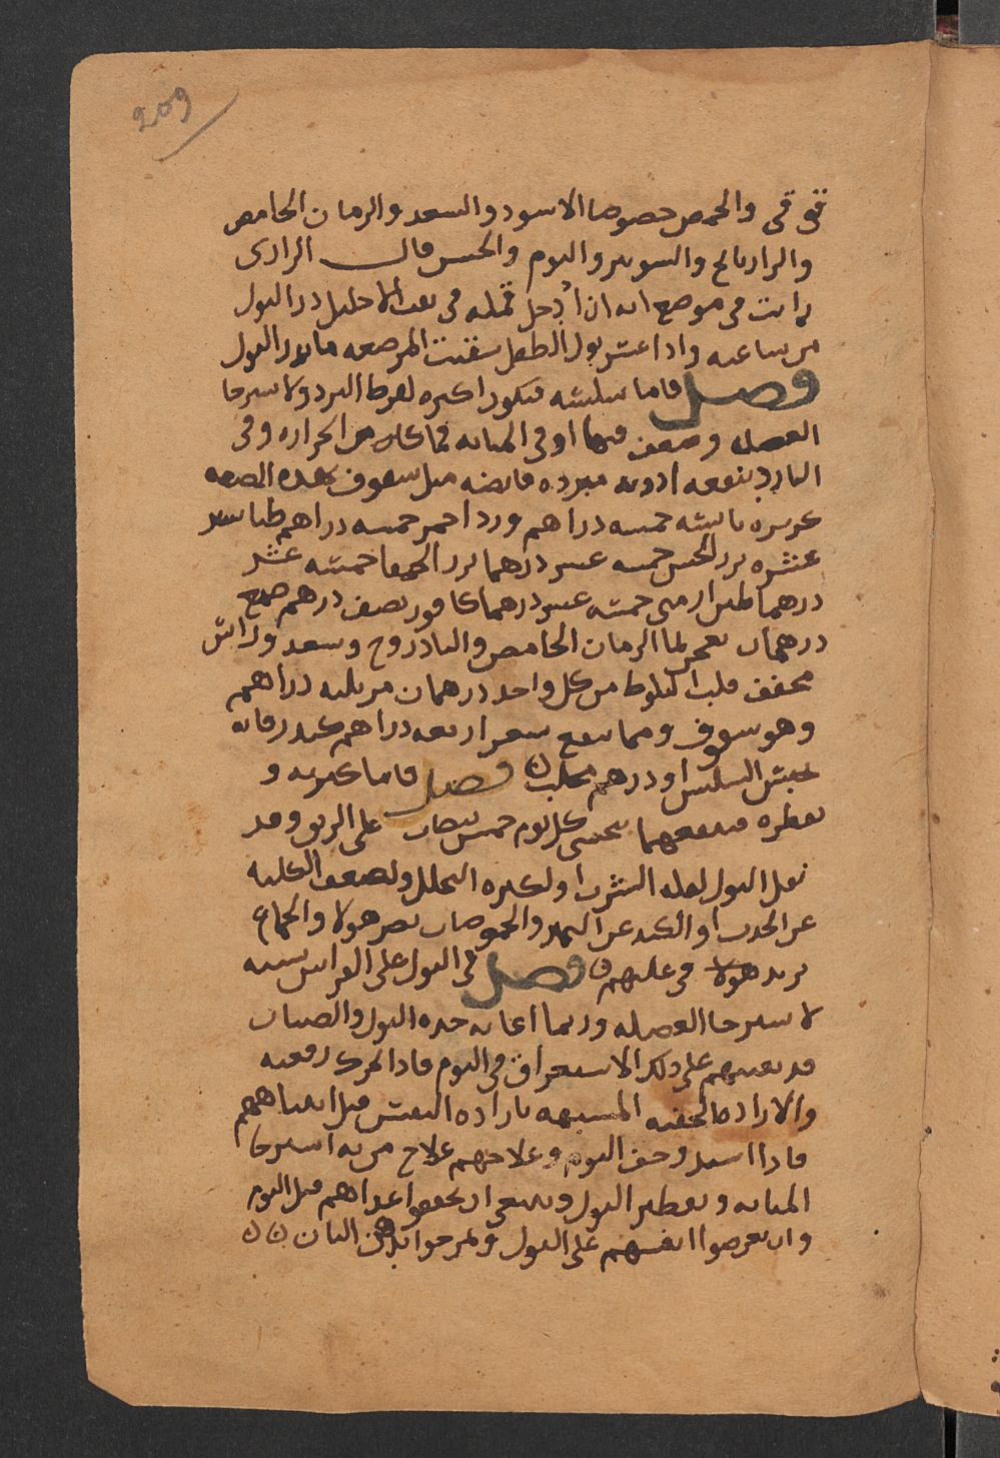 209
قوقى والحمص خصوصا الاسود والسعد والرمان الحامض
والرازيانج والشونيز والثوم والخس قال الرازى
رايت فى موضع انه ان أدخل قمله فى ثقب الاحليل در البول
من ساعته واذا عسر بول الطفل سقيت المرضعه ما يدر البول
فصل فاما سلسه فيكون اكثره لفرط البرد ولاسترخا
العضله وضعف فيها او فى المثانه فما كان من الحراره وفى
البارد ينفعه ادويه مبرده قابضه مثل سفوف بهذه الصفه
كزبره يابسه خمسه دراهم ورد احمر خمسه دراهم طباشير
عشره بزر الخس خمسه عشر درهما بزر الحمقا خمسه عشر
درهما طين ارمنى خمسه عشر درهما كافور نصف درهم صمغ
درهمان يعجن بما الرمان الحامض والبادروج وسعد وراش
مجفف قلب البلوط من كل واحد درهمان مر ثلثه دراهم
وهو سفوف ومما ينفع سعد اربعه دراهم كندر فانه
يحبس السلس او درهم محلب فصل فاما كثرته و
تقطره فينفعهما تحسى كل يوم خمس بيضات على الريق وقد
يقل البول لقله الشرب او لكثره التحلل ولضعف الكليه
عن الجذب او الكبد عن التميز والحموضات تضر هولا والجماع
يزيد هولا فى علتهم فصل فى البول على الفراش سببه
لاسترخا العضله وربما اعانه حده البول والصبيان
قد يعينهم على ذلك الاستغراق فى النوم فاذا تحرك دفعته
والاراده الخفيه المشبهه باراده التنفس قبل انتباههم
فاذا اشتد وخف النوم وعلاجهم علاج من به استرخا
المثانه وتقطير البول وينبغى ان يخففوا غذاهم قبل النوم
وان يعرضوا انفسهم على البول ويمرخوا بدهن البان